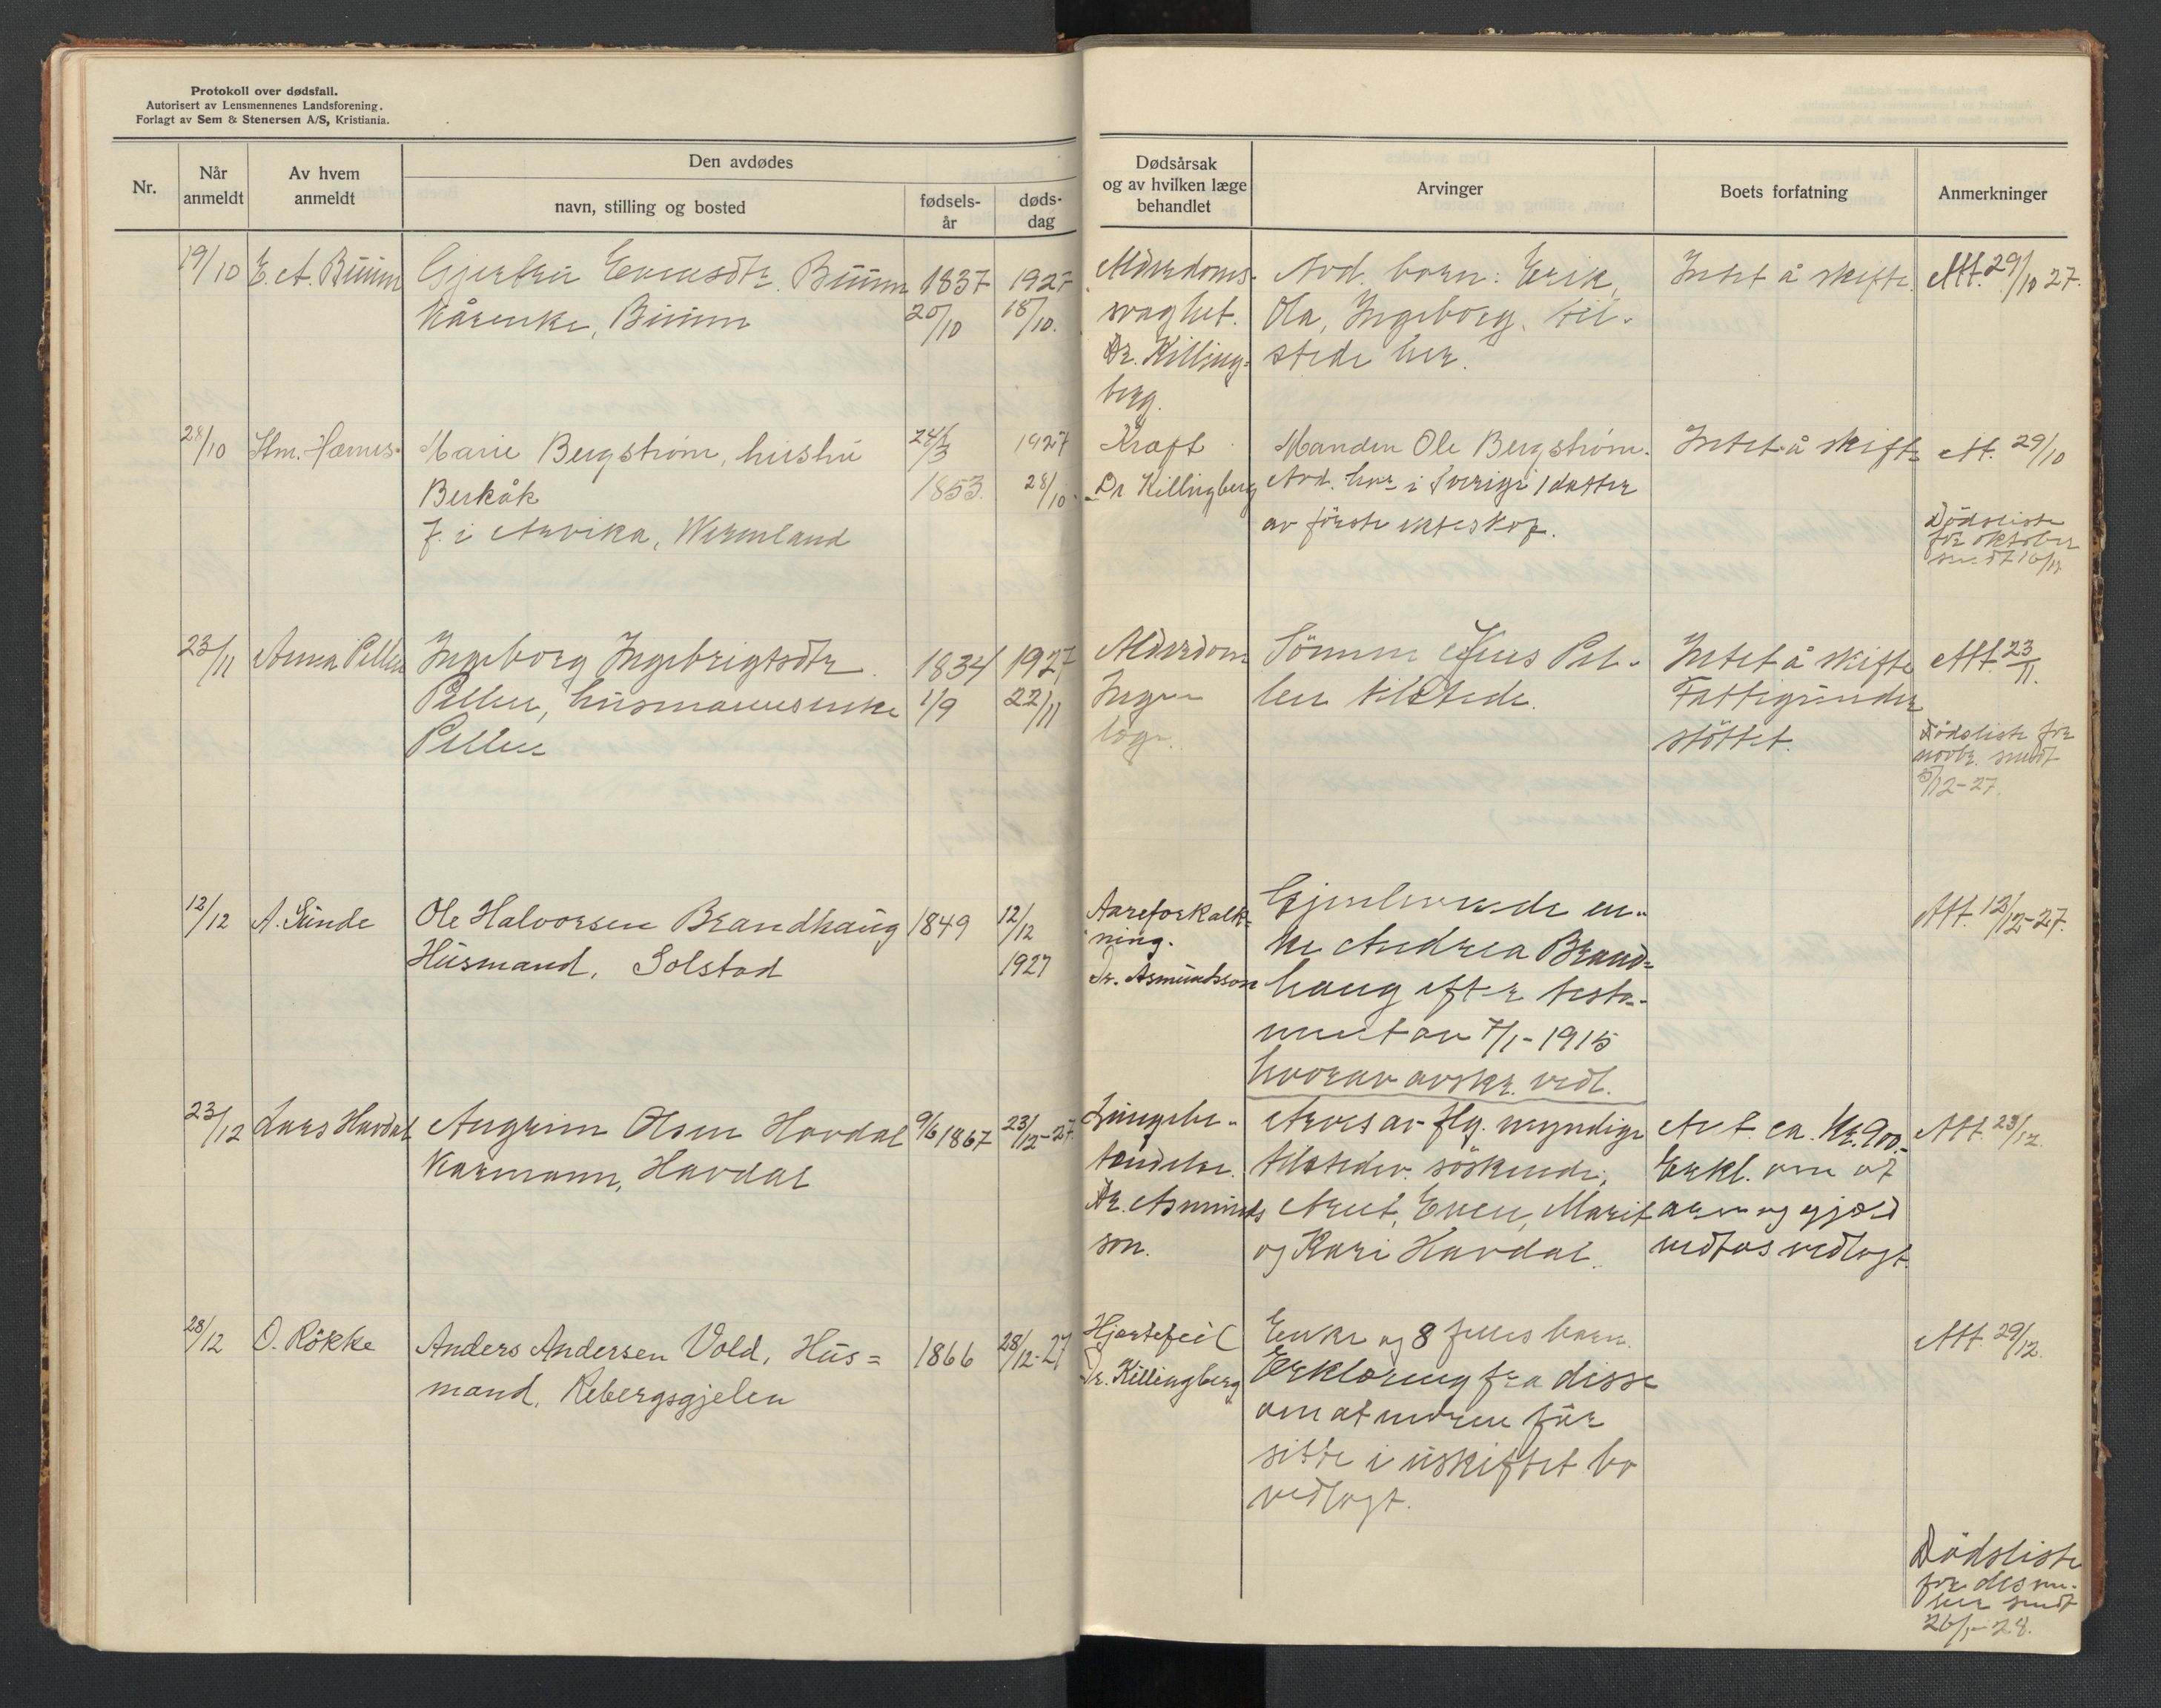 Protokoll over dødsfall.
Autorisert av Lensmennenes Landsforening.
Forlagt av Sem & Stenersen A/S, Kristiania.
Nr.
Når
anmeldt
Av hvem
anmeldt
Den avdødes
navn, stilling og bosted
fødsels-
år
døds-
dag
Dødsårsak
og av hvilken læge
behandlet
Arvinger
Boets forfatning
Anmerkninger
19/10 E. A. Buum Gjertru Evensdtr. Buum 1837 1927
Kårenke, Buum 20/10 18/10.
Alderdoms-
svaghet.
Dr. Killing-
berg.
Avd. barn: Erik,
Ola, Ingeborg, til-
stede her.
Intet å skifte.
Att. 29/10 27.
28/10 Hm. Hærnes Marie Bergstrøm, hustru 24/3 1927
Berkåk 1853. 28/10.
f. i Arvika, Wermland
Kraft
Dr Killingberg
Manden Ole Bergstrøm.
Avd. har i Sverige 1 datter
av första ekteskap.
Intet å skifte
Att. 29/10
Dödsliste
for oktober
sendt 10/11
23/11 Anna Pellen Ingeborg Ingebrigtsdtr. 1834 1927
Pellen, husmannsenke 1/9 22/11
Pellen
Alderdom
Ingen
læge.
Sönnen Jens Pel-
len tilstede.
Intet å skifte
Fattigunder
stöttet.
Att. 23/11.
Dödsliste for
novbr. sendt
5/12-27.
12/12 A. Sunde Ole Halvorsen Brandhaug 1849 12/12
Husmand, Solstad 1927
Aareforkalk-
ning.
Dr. Asmundsson
Gjenlevende en-
ke Andrea Brand-
haug efter testa-
ment av 7/1-1915
hvorav avskr. vedl.
Att. 12/12-27.
23/12 Lars Havdal Angrim Olsen Havdal 9/6 1867 23/12-27.
Karmann, Havdal
Lungebe-
tendelse.
Dr. Asmunds
son.
Arves av flg. myndige
tilsteder. söskende;
Arnt, Even, Marit
og Kari Havdal.
Akt. ca. Kr. 900.-
Erkl. om at
arv og gjæld
vedtas vedlagt.
Att. 23/12.
28/12 O. Rökke Anders Andersen Vold, Hus= 1866 28/12-27
mand, Rebergsgjelen
Hjertefeil
Dr. Killingberg
Enke og 8 felles barn.
Erklæring fra disse
om at moren får
sitte i uskiftet bo
vedlagt.
Att. 29/12.
Dödsliste
for desem-
ber sendt
26/1-28.